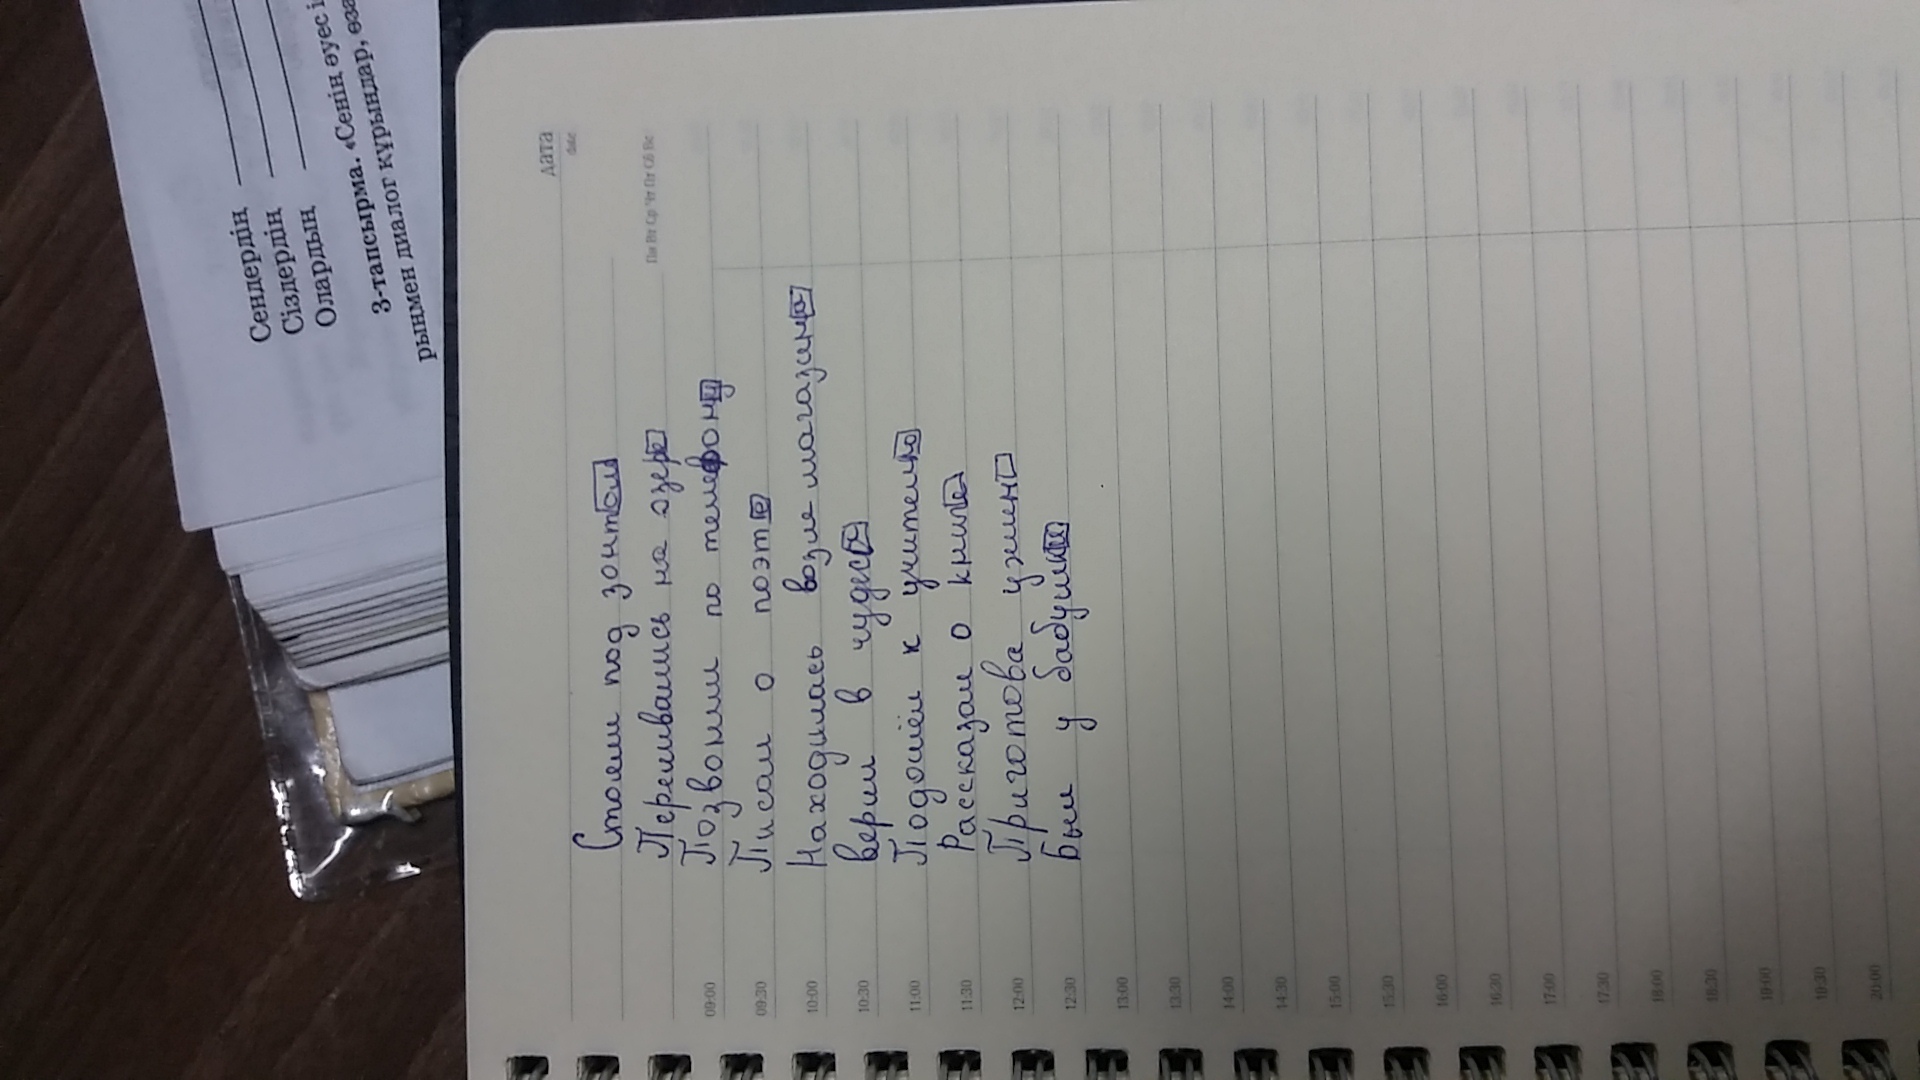 Сендердің
Сіздердің
Олардың
3-тапсырма. «Сенің әуес і
рыңмен диалог құрыңдар, өза
Дата
date
Пн Вт Ср Чт Пт Сб Вс
Стояли под зонтом
Переливались на озере
09:00 Позвонили по телефону
09:30 Писал о поэте
10:00 Находилась возле магазина
10:30 верил в чудеса
11:00 Подошёл к учителю
11:30 Рассказал о книге
12:00 Приготова ужин
12:30 был у бабушки
13:00
13:30
14:00
14:30
15:00
15:30
16:00
16:30
17:00
17:30
18:00
18:30
19:00
19:30
20:00